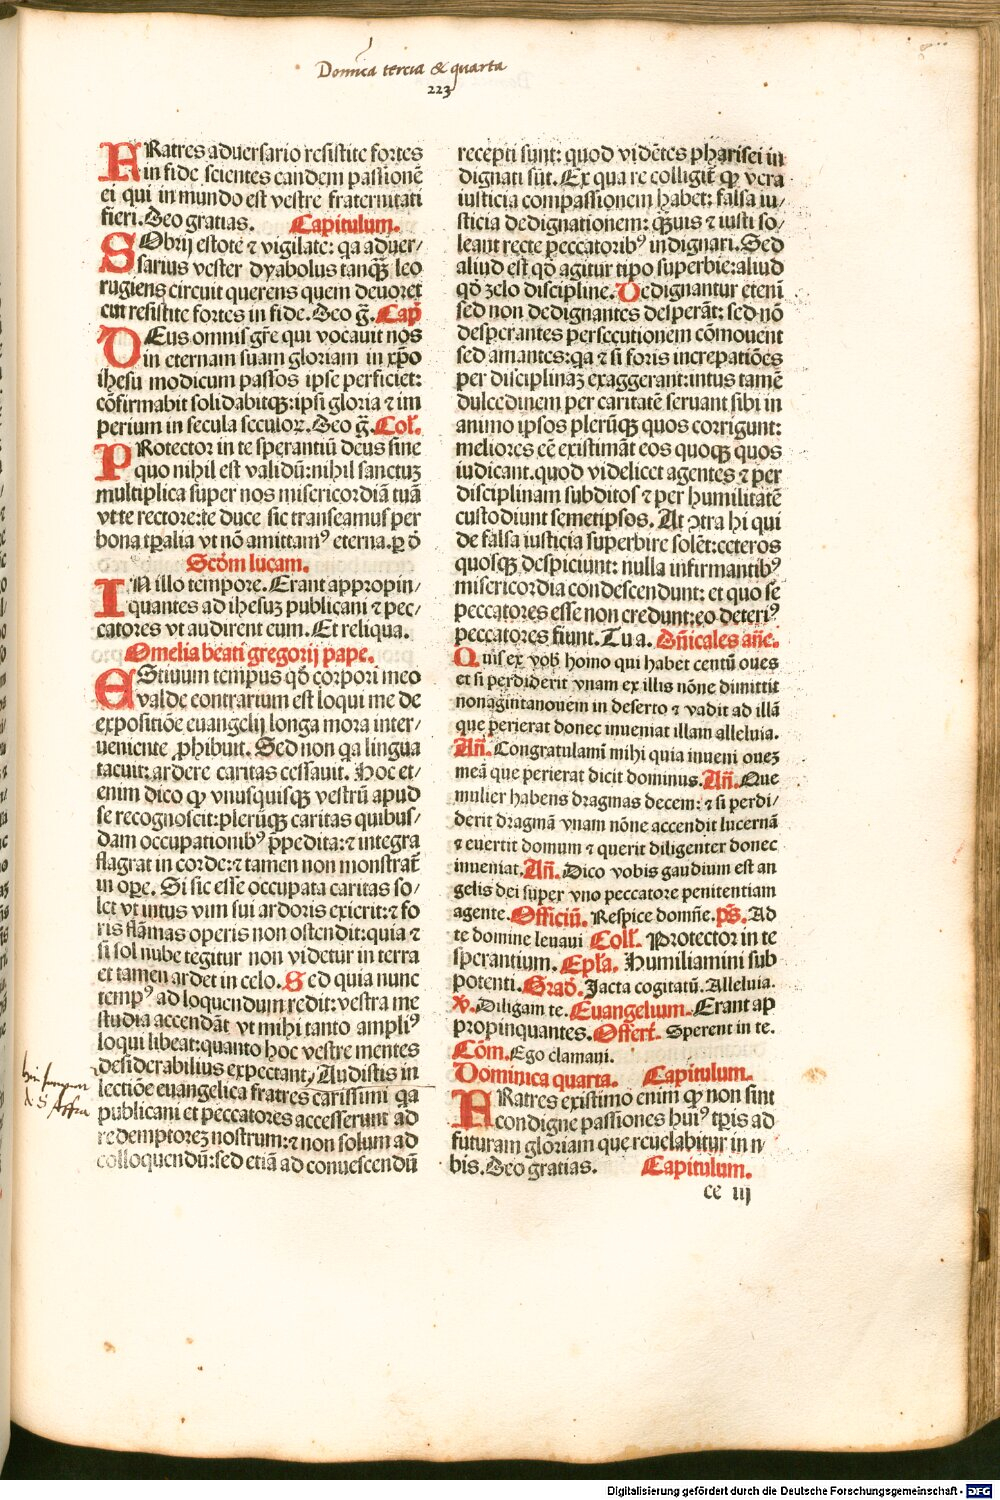 Domīca tercia & quarta
223
FRatres aduersario resistite fortes
in fide scientes eandem passionē
ei qui in mundo est vestre fraternitati
fieri. Deo gratias. Capitulum.
SObrij estote ⁊ vigilate: qa aduer/
sarius vester dyabolus tanqꝫ leo
rugiens circuit querens quem deuoret
cui resistite fortes in fide. Deo g̃. Capt̃
DEus omnis gr̃e qui vocauit nos
in eternam suam gloriam in xp̄o
ihesu modicum passos ipse perficiet:
cōfirmabit solidabitqꝫ: ipsi gloria ⁊ im
perium in secula seculoꝝ. Deo g̃. Col'.
PRotector in te sperantiū deus sine
quo nihil est validū: nihil sanctuꝫ
multiplica super nos misericordiā tuā
vt te rectore: te duce sic transeamus per
bona tp̄alia vt nō amittamꝰ eterna. ꝑ ō
Scōm lucam.
IN illo tempore. Erant appropin/
quantes ad ihesuꝫ publicani ⁊ pec/
catores vt audirent eum. Et reliqua.
Omelia beati gregorij pape.
EStiuum tempus qd̄ corpori meo
valde contrarium est loqui me de
expositiōe euangelij longa mora inter/
ueniente ꝓhibuit. Sed non qa lingua
tacuit: ardere caritas cessauit. Hoc et/
enim dico qꝫ vnusquisqꝫ vestrū apud
se recognoscit: plerūqꝫ caritas quibus/
dam occupationibꝰ p̄pedita: ⁊ integra
flagrat in corde: ⁊ tamen non monstrat̄
in oꝑe. Si sic esse occupata caritas so/
let vt intus vim sui ardoris exierit: ⁊ fo
ris flāmas operis non ostendit: quia ⁊
si sol nube tegitur non videtur in terra
et tamen ardet in celo. Sed quia nunc
tempꝰ ad loquendum redit: vestra me
studia accendāt vt mihi tanto ampliꝰ
loqui libeat: quanto hoc vestre mentes
desiderabilius expectant, Audistis in
lectiōe euangelica fratres carissimi qa
publicani et peccatores accesserunt ad
redemptoreꝫ nostrum: ⁊ non solum ad
colloquendū: sed etiā ad conuescendū
recepti sunt: quod vidētes pharisei in
dignati sūt. Ex qua re colligit̄ qꝫ vera
iusticia compassionem habet: falsa iu/
sticia dedignationem: qꝫuis ⁊ iusti so/
leant recte peccatoribꝰ indignari. Sed
aliud est qd̄ agitur tipo superbie: aliud
qd̄ zelo discipline. Dedignantur eteni
sed non dedignantes desperāt: sed nō
desperantes persecutionem cōmouent
sed amantes: qa ⁊ si foris increpatiōes
per disciplinaꝫ exaggerant: intus tamē
dulcedinem per caritatē seruant sibi in
animo ipsos plerūqꝫ quos corrigunt:
meliores eē existimāt eos quoqꝫ quos
iudicant. quod videlicet agentes ⁊ per
disciplinam subditos ⁊ per humilitatē
custodiunt semetipsos. At ꝯtra hi qui
de falsa iusticia superbire solēt: ceteros
quosqꝫ despiciunt: nulla infirmantibꝰ
misericordia condescendunt: et quo se
peccatores esse non credunt: eo deteriꝰ
peccatores fiunt. Tu a. Dn̄icales an̄e.
Quis ex vob' homo qui habet centū oues
et si perdiderit vnam ex illis nōne dimittit
nonagintanouem in deserto ⁊ vadit ad illā
que perierat donec inueniat illam alleluia.
An̄. Congratulami mihi quia inueni oueꝫ
meā que perierat dicit dominus. An̄. Que
mulier habens dragmas decem: ⁊ si perdi/
derit dragmā vnam nōne accendit lucernā
⁊ euertit domum ⁊ querit diligenter donec
inueniat. An̄. Dico vobis gaudium est an
gelis dei super vno peccatore penitentiam
agente. Officiū. Respice domn̄e. ps̄. Ad
te domine leuaui Coll'. Protector in te
sperantium. Epl'a. Humiliamini sub
potenti. Grad̄. Jacta cogitatū. Alleluia.
℣. Diligam te. Euangelium. Erant ap
propinquantes. Offert̄. Sperent in te.
Cōm. Ego clamaui.
Dominica quarta. Capitulum.
FRatres existimo enim qꝫ non sint
condigne passiones huiꝰ tp̄is ad
futuram gloriam que reuelabitur in n/
bis. Deo gratias. Capitulum.
ce iij
Digitalisierung gefördert durch die Deutsche Forschungsgemeinschaft - DFG